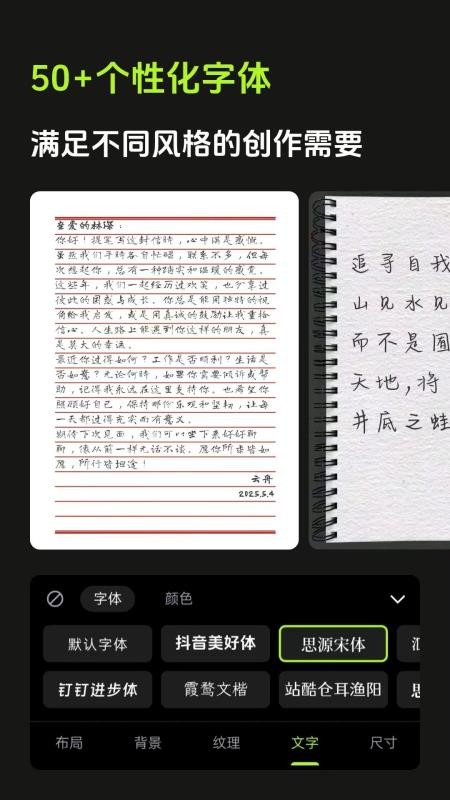 50+个性化字体
满足不同风格的创作需要
亲爱的林深：
你好！提笔写这封信时，心中满是感慨。
虽然我们平时各自忙碌，联系不多，但每
次想起你，总有一种踏实和温暖的感觉。
这些年，我们一起经历过欢笑，也分享过
彼此的困惑与成长。你总是能用独特的视
角给我启发，或是用真诚的鼓励让我重拾
信心。人生路上能遇到你这样的朋友，真
是莫大的幸运。
最近你过得如何？工作是否顺利？生活是
否如意？无论何时，如果你需要倾诉或帮
助，记得我永远在这里支持你。也希望你
照顾好自己，保持那份乐观和坚韧，让每
一天都过得充实而有意义。
期待下次见面，我们可以坐下来好好聊
聊，像从前一样无话不谈。愿你所求皆如
愿，所行皆坦途！
云舟
2025.5.4
追寻自我
山见水见
而不是囿
天地，将
井底之蛙
字体
颜色
默认字体
抖音美好体
思源宋体
钉钉进步体
霞鹜文楷
站酷仓耳渔阳
思
布局
背景
纹理
文字
尺寸